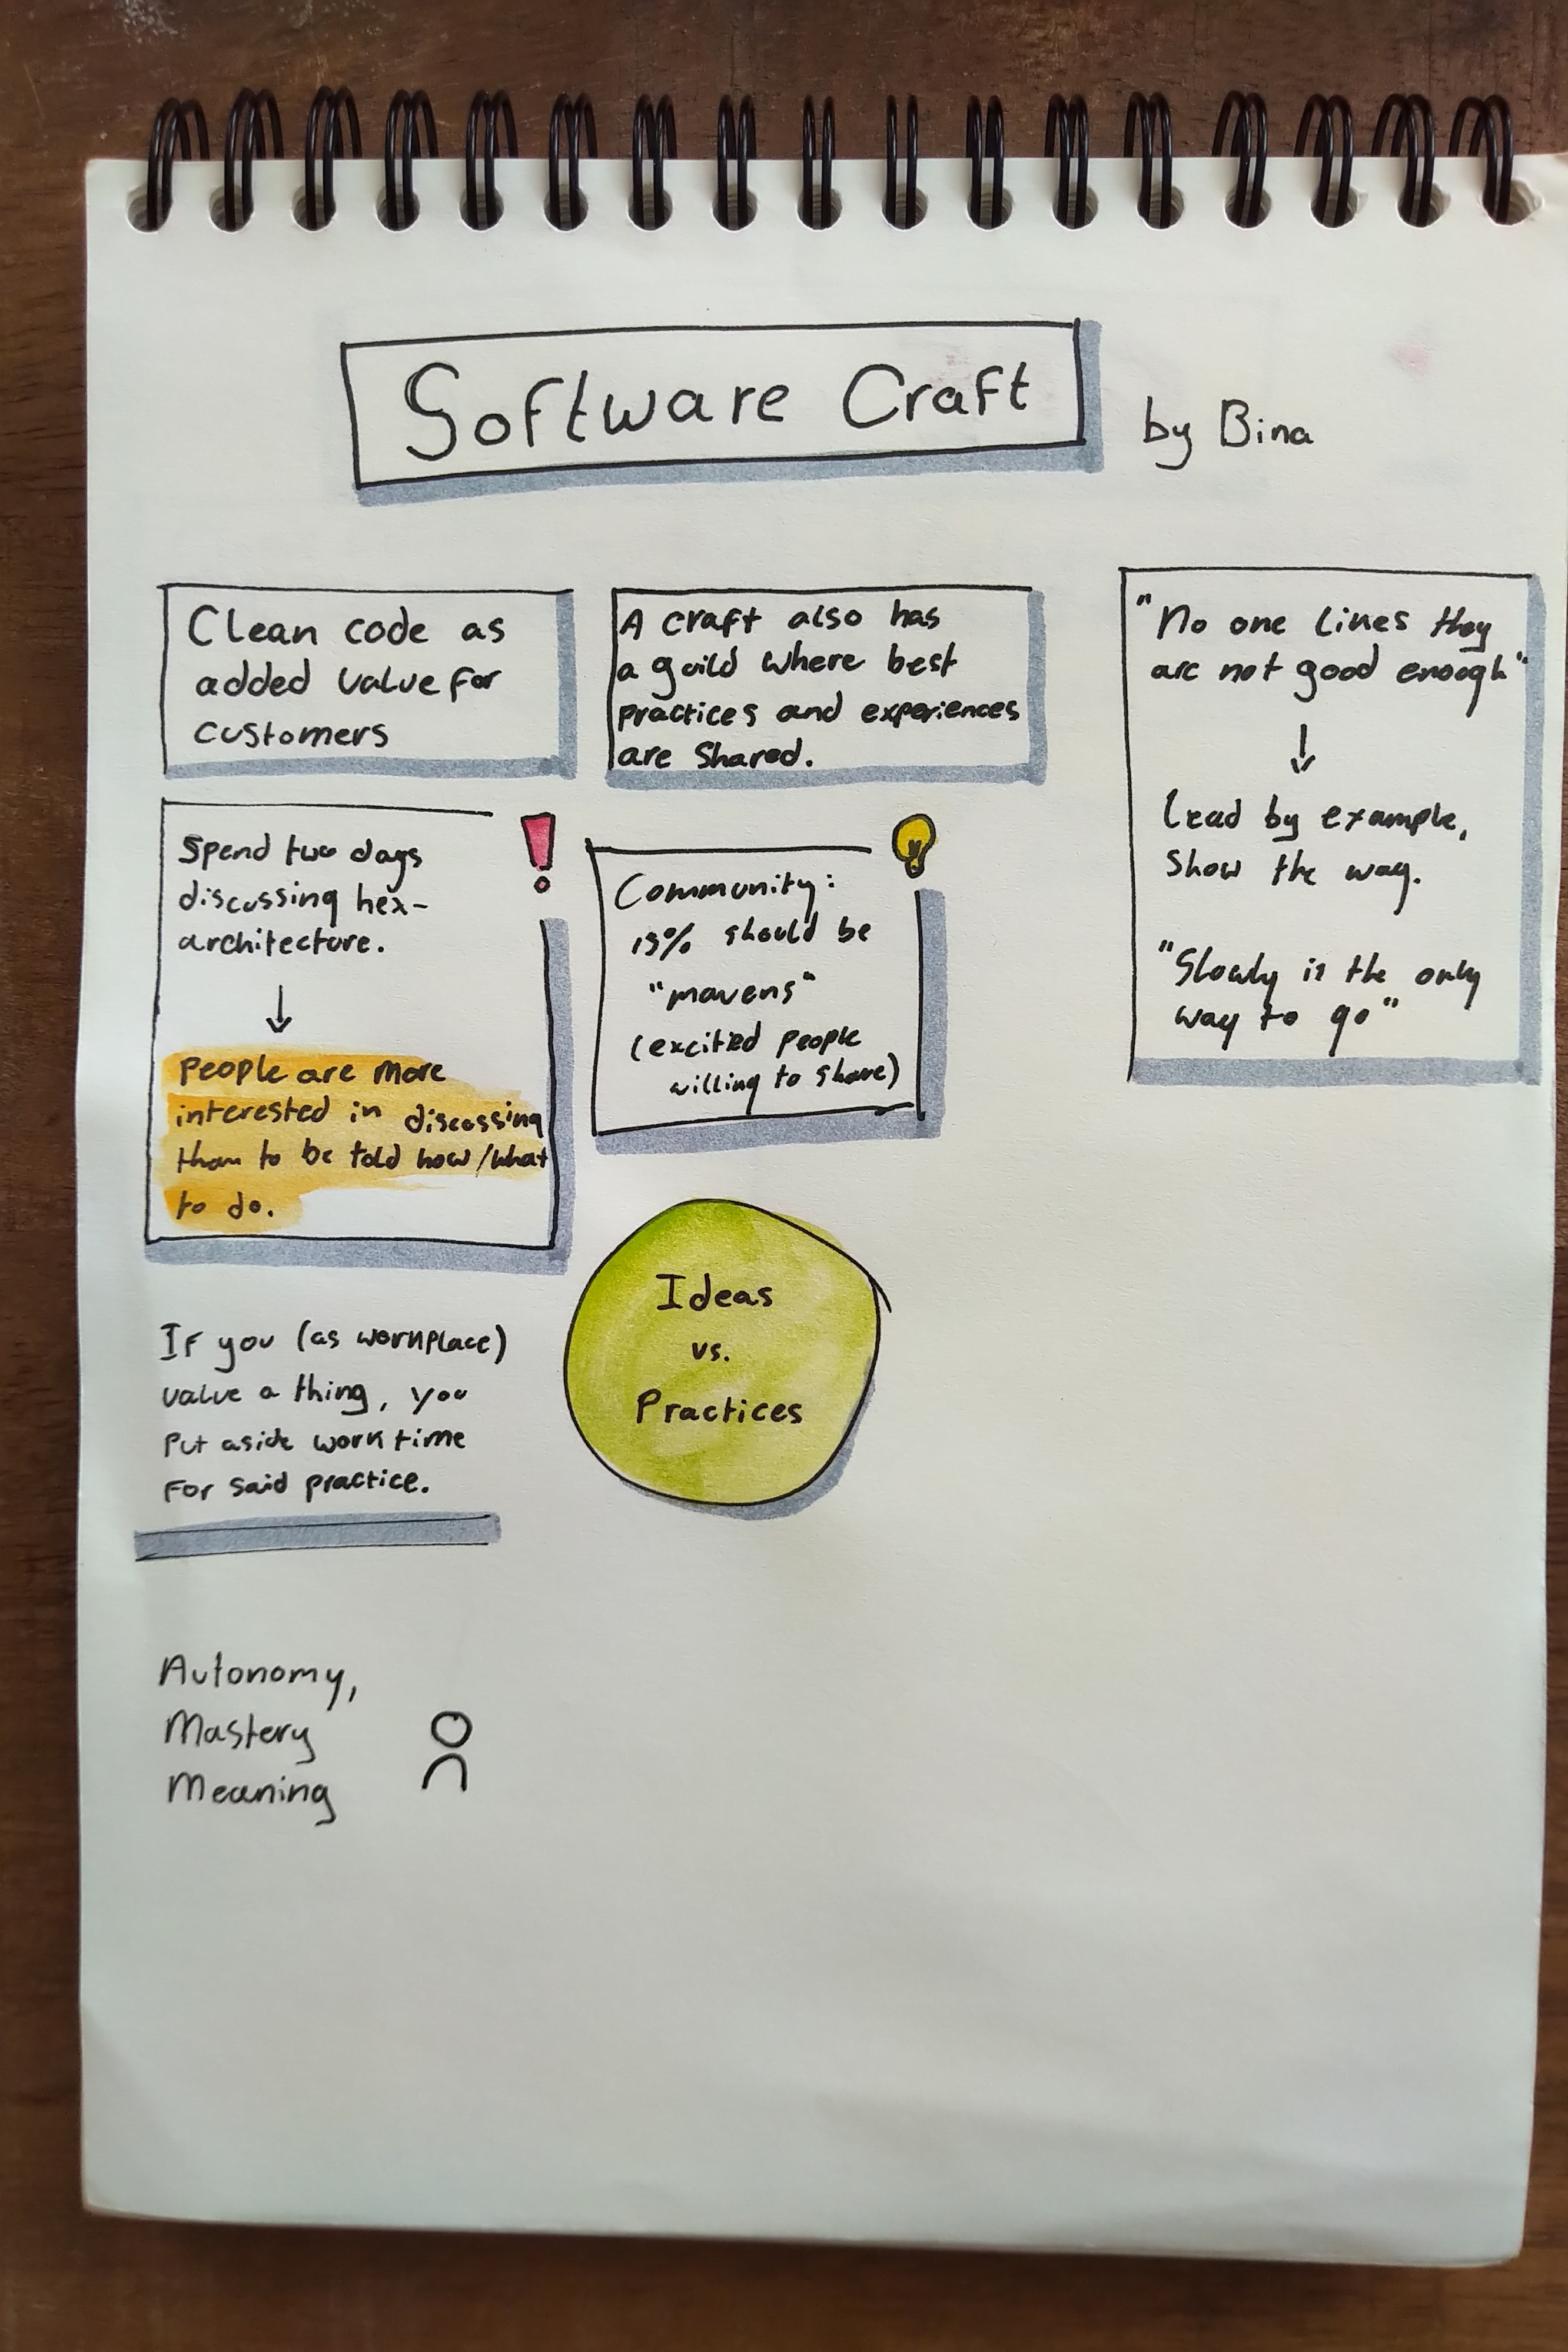 Software Craft
by Bina
Clean code as
added value for
customers
A craft also has
a guild where best
practices and experiences
are shared.
"No one likes they
are not good enough"
↓
Lead by example,
show the way.
"Slowly is the only
way to go"
Spend two days
discussing hex-
architecture.
↓
People are more
interested in discussing
than to be told how/what
to do.
Community:
15% should be
"mavens"
(excited people
willing to share)
Ideas
vs.
Practices
If you (as workplace)
value a thing, you
put aside work time
for said practice.
Autonomy,
Mastery
Meaning